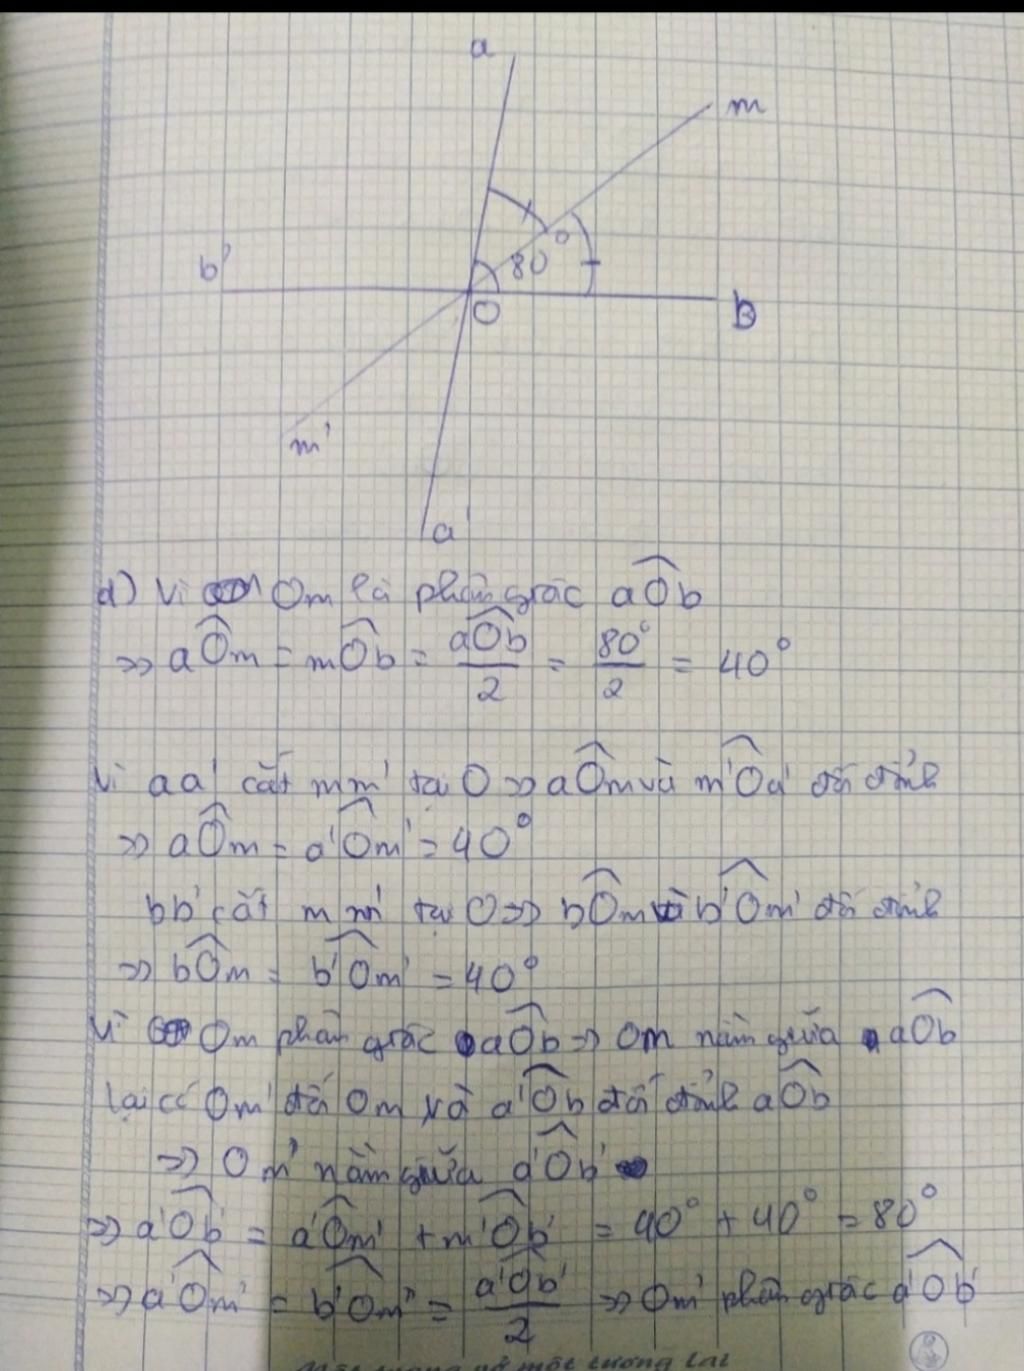 a
m
b'
80°
O
B
m'
a'
d) Vì Om là phân giác aÔb
=> aÔm = mÔb = aÔb/2 = 80°/2 = 40°
Vì aa' cắt mm' tại O => aÔm và m'Ôa' đối đỉnh
=> aÔm = a'Ôm' = 40°
bb' cắt mm' tại O => bÔm và b'Ôm' đối đỉnh
=> bÔm = b'Ôm' = 40°
Vì Om phân giác aÔb => Om nằm giữa aÔb
lại có Om' đối Om và a'Ôb đối đỉnh aÔb
=> Om' nằm giữa a'Ôb'
=> a'Ôb' = a'Ôm' + m'Ôb' = 40° + 40° = 80°
=> a'Ôm' = b'Ôm' = a'Ôb'/2 => Om' phân giác a'Ôb'
một tương lai